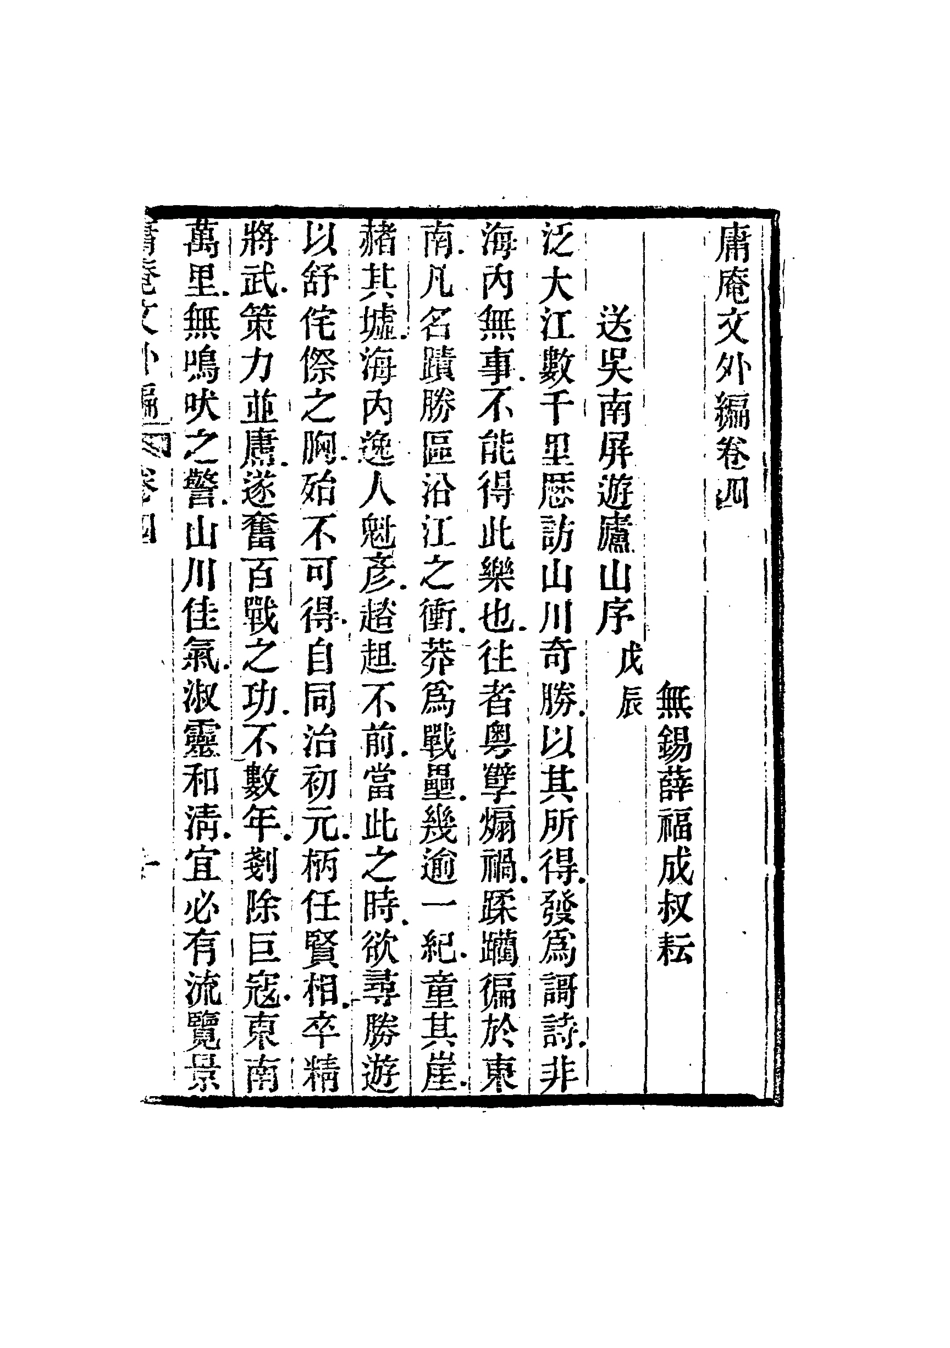 庸庵文外編卷四
無錫薛福成叔耘
送吳南屏遊廬山序戊辰
泛大江數千里歷訪山川奇勝以其所得發爲謌詩非
海內無事不能得此樂也往者粵孽煽禍蹂躪徧於東
南凡名蹟勝區沿江之衝莽爲戰壘幾逾一紀童其崖
赭其墟海內逸人魁彥趦趄不前當此之時欲尋勝遊
以舒侘傺之胸殆不可得自同治初元柄任賢相卒精
將武策力並鷹遂奮百戰之功不數年剗除巨寇東南
萬里無鳴吠之警山川佳氣淑靈和淸宜必有流覽景
庸庵文外編 卷四